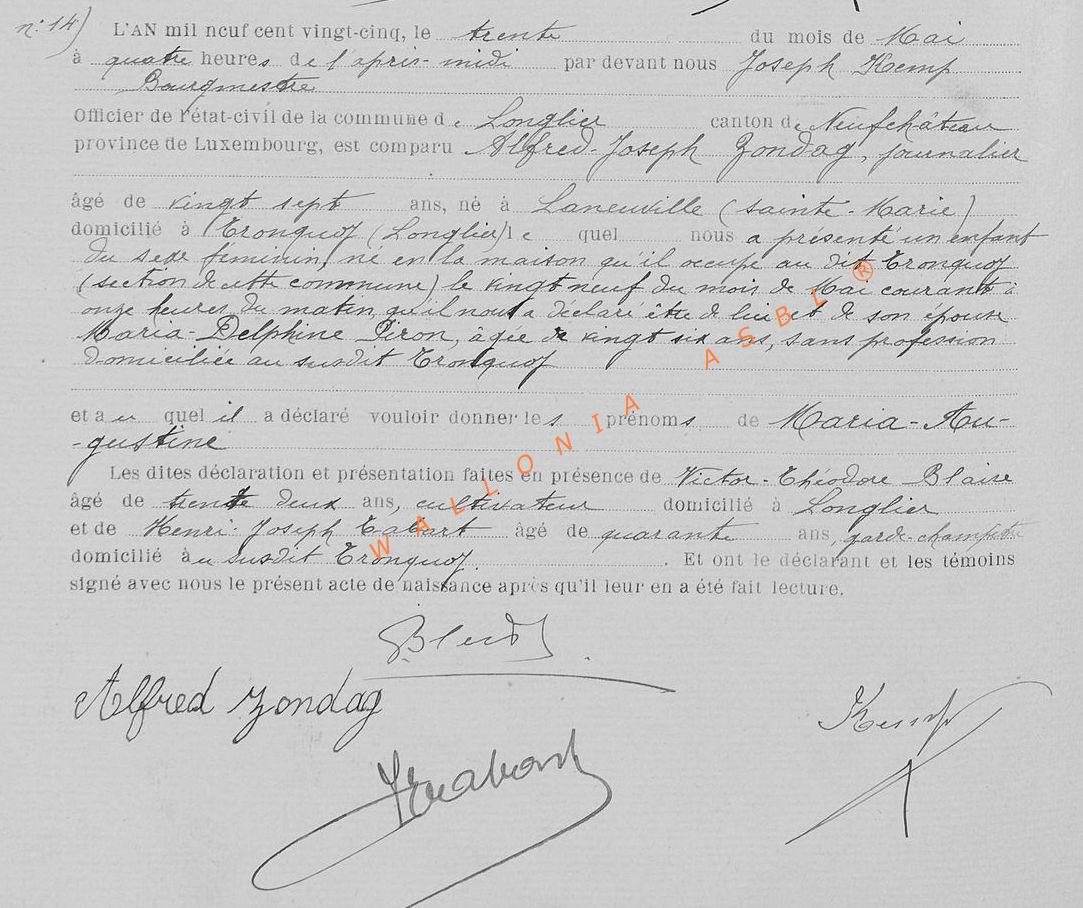 n: 14)
L'AN mil neuf cent vingt-cinq, le trente du mois de Mai
à quatre heures de l'après-midi par devant nous Joseph Kemp
Bourgmestre
Officier de l'état-civil de la commune de Longlier canton de Neufchâteau
province de Luxembourg, est comparu Alfred-Joseph Zondag, journalier
âgé de vingt sept ans, né à Laneuville (Sainte-Marie)
domicilié à Tronquoy (Longlier) le quel nous a présenté un enfant
du sexe féminin, né en la maison qu'il occupe au dit Tronquoy
(section de cette commune) le vingt neuf du mois de Mai courant à
onze heures du matin, qu'il nous a déclaré être de lui et de son épouse
Maria-Delphine Piron, âgée de vingt six ans, sans profession
domiciliée au susdit Tronquoy
et au quel il a déclaré vouloir donner les prénoms de Maria-Au-
-gustine
Les dites déclaration et présentation faites en présence de Victor-Théodore Blaise
âgé de trente deux ans, cultivateur domicilié à Longlier
et de Henri-Joseph âgé de quarante ans, garde-champêtre
domicilié au susdit Tronquoy. Et ont le déclarant et les témoins
signé avec nous le présent acte de naissance après qu'il leur en a été fait lecture.
Alfred Zondag
Kemp
WALLONIA ASBL ®